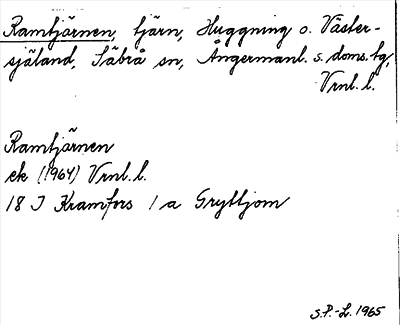 Ramtjärnen, tjärn, Huggning o. Väster-
själand, Säbrå sn, Ångermanl. s. doms. tg,
Vrnl. l.
Ramtjärnen
ek (1964) Vrnl. l.
18 I Kramfors 1 a Gryttjom
S.P.-L. 1965